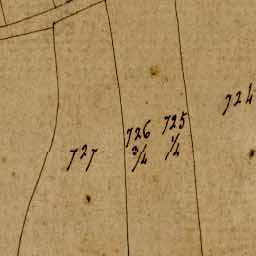 724
725
1/4
726
3/4
727